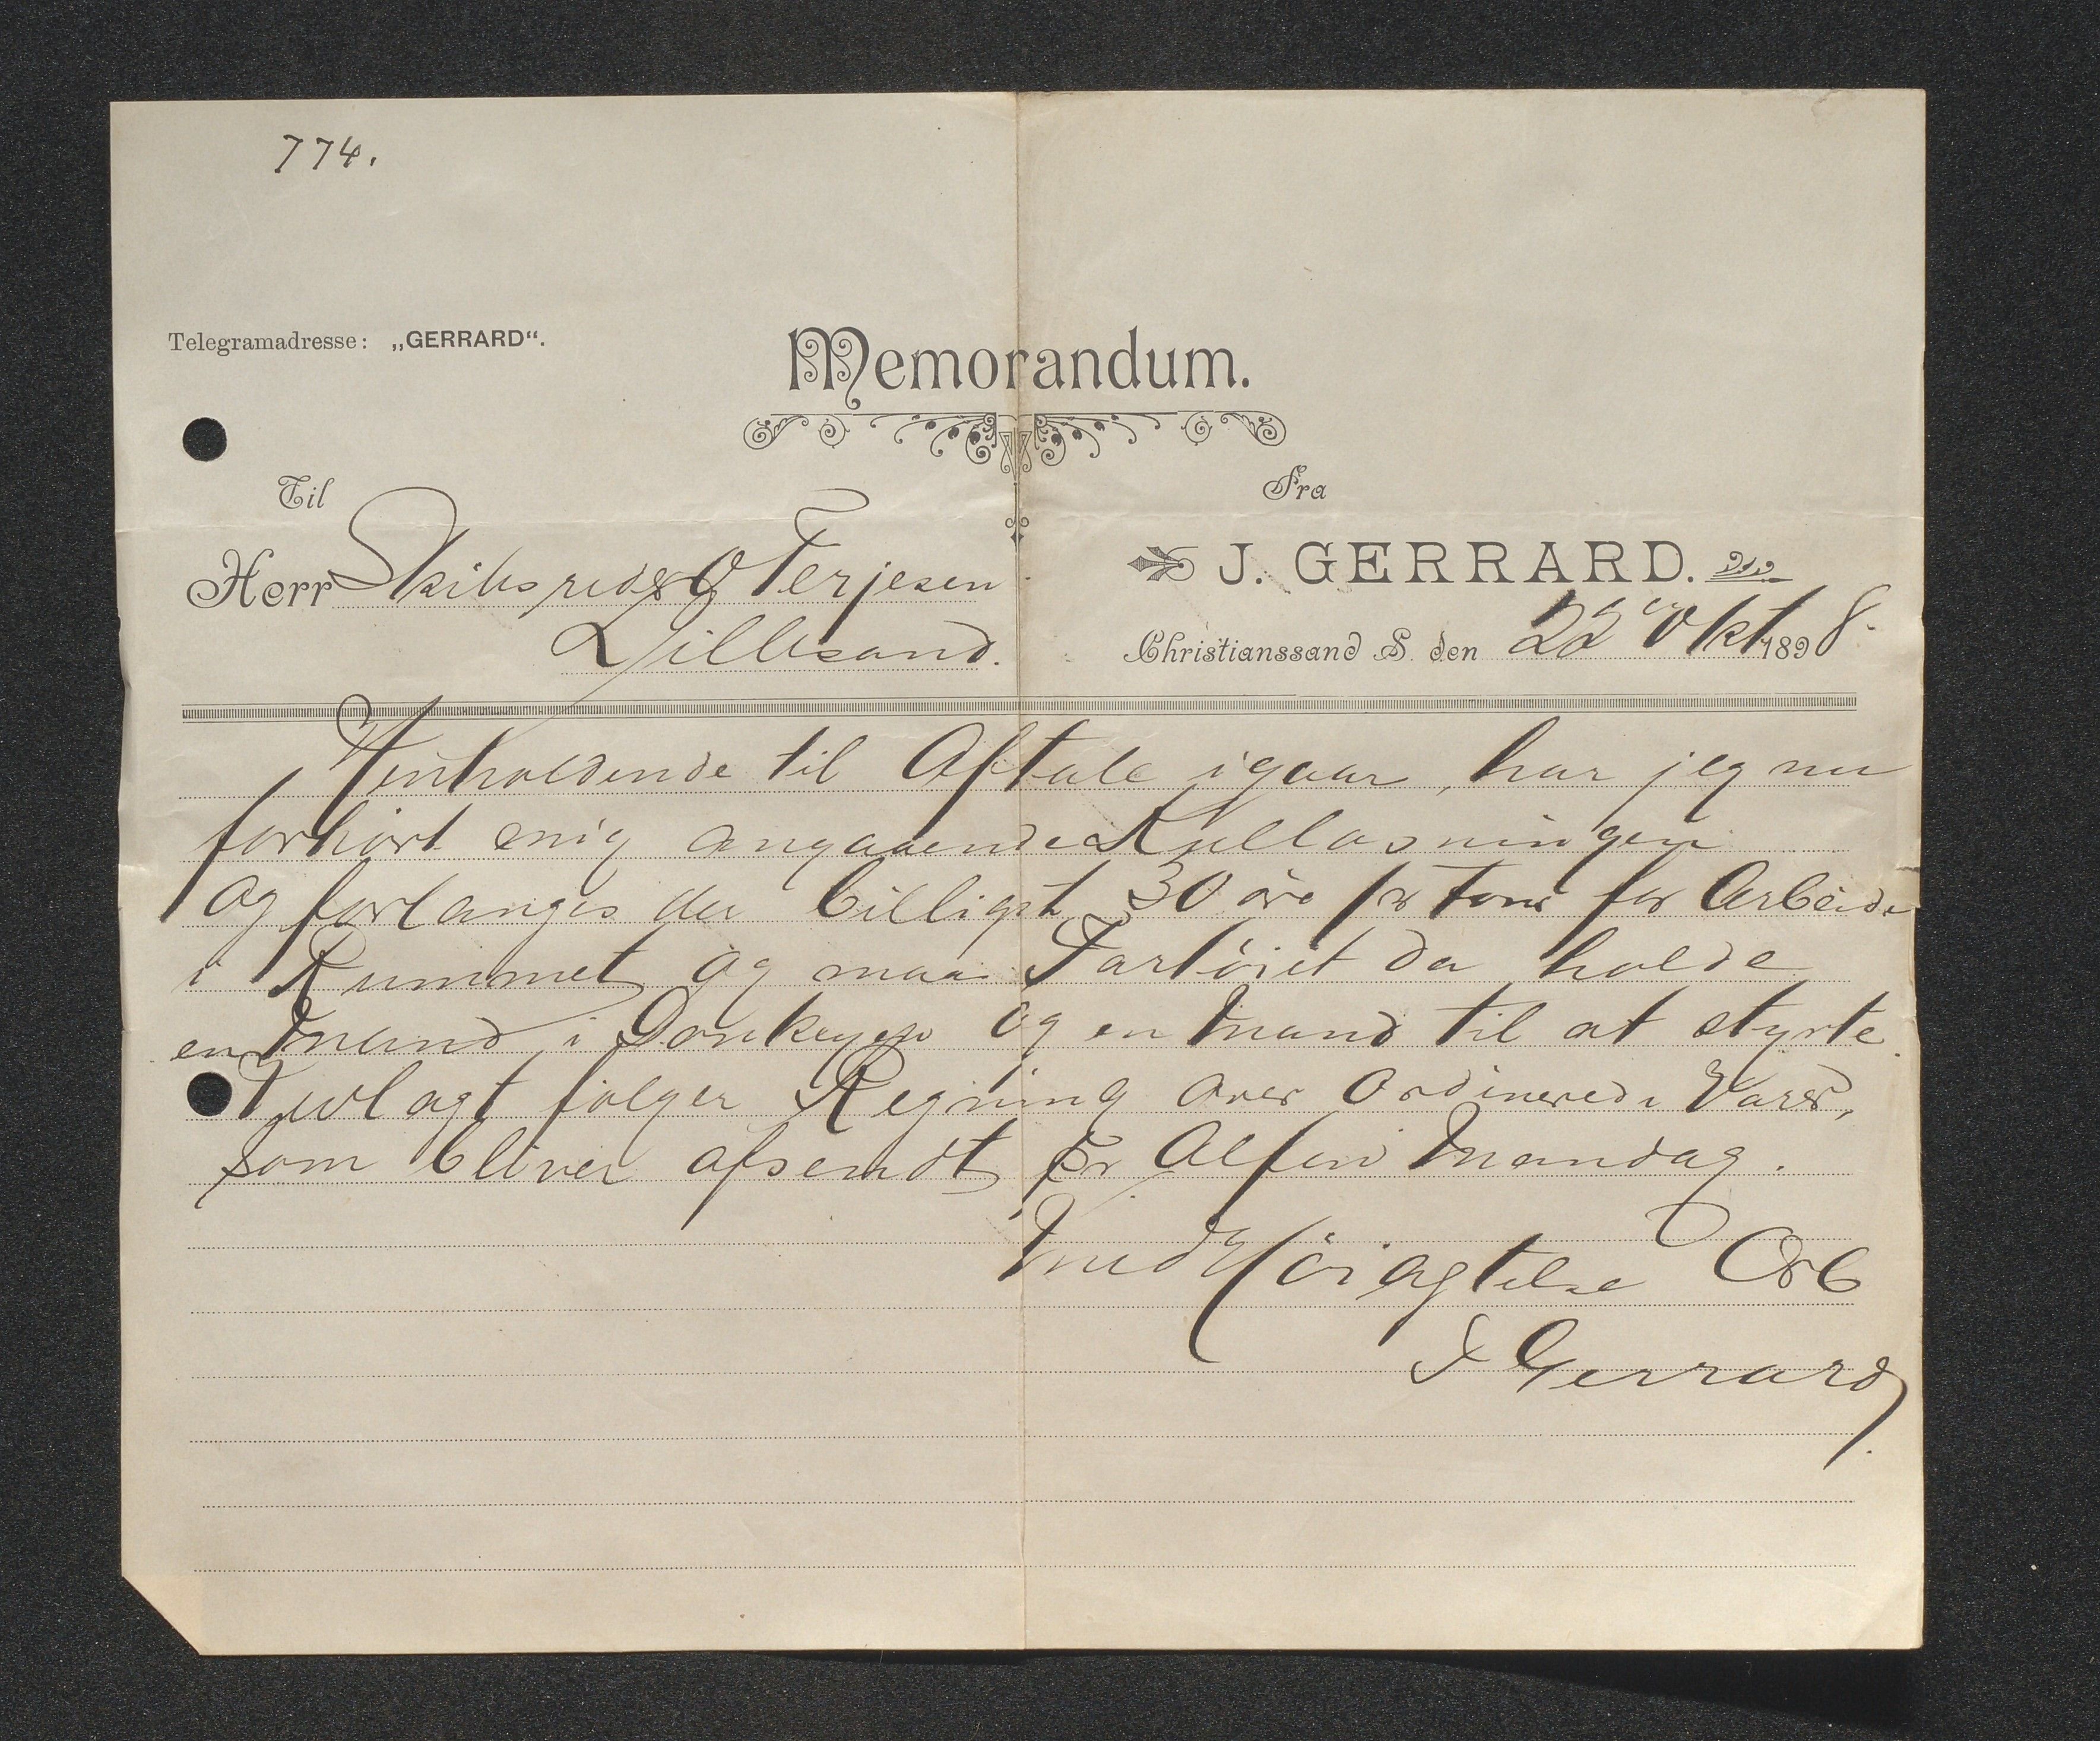 774.
Telegramadresse: „GERRARD“.
Memorandum.
Til
Fra
Herr Skibsreder O Terjesen
J. GERRARD.
Lillesand.
Christianssand S. den 22 Okt 1898.
Henholdende til Aftale igaar, har jeg nu
forhört mig angaaende Kullosningen
og forlanges der billigst 30 öre pr Tons for Arbeide
i Rummet og maa Fartöiet da holde
en Mand i Donkeyen og en Mand til at styrte.
Indlagt fölger Regning over ordinerede Varer,
som bliver afsendt pr Alfen Mandag.
Med Höiagtelse Erb
J Gerrard